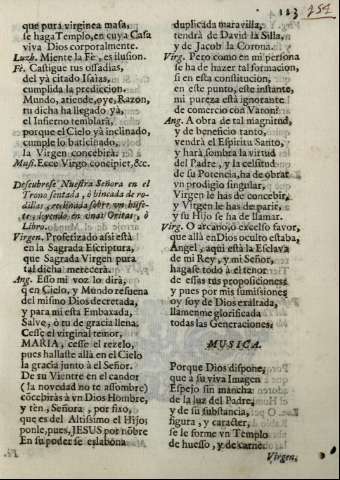 113 751
que pura virginea masa,
se haga Templo, en cuya Casa
viva Dios corporalmente.
Luzb. Miente la Fè, es ilusion.
Fè. Castigue tus ossadias,
del yà citado Isaias,
cumplida la prediccion.
Mundo, atiende, oye, Razon,
tu dicha ha llegado yà,
el Infierno temblarà,
porque el Cielo yà inclinado,
cumple lo baticinado,
la Virgen concebirà.
Musi. Ecce Virgo concipiet, &c.
Descubrese Nuestra Señora en el
Trono sentada, ò hincada de ro-
dillas, reclinada sobre un bufe-
te, leyendo en unas Oritas, ò
Libro.
Virgen. Profetizado assi està
en la Sagrada Escriptura,
que Sagrada Virgen pura
tal dicha merecerà.
Ang. Esso mi voz lo dirà,
q̃ en Cielo, y Mundo resuena
del mismo Dios decretada,
y para mi esta Embaxada,
Salve, ò tu de gracia llena.
Cesse el virginal temor,
MARIA, cesse el rezelo,
pues hallaste allà en el Cielo
la gracia junto à el Señor.
De su Vientre en el candor
(la novedad no te assombre)
cõcebiràs à vn Dios Hombre,
y ten, Señora, por fixo,
que es del Altissimo el Hijo;
ponle, pues, JESUS por nõbre
En su poder se eslabona
duplicada maravilla,
tendrà de David la Silla,
y de Jacob la Corona.
Virg. Pero como en mi persona
se ha de hazer tal formacion,
si en esta constitucion,
en este punto, este instante,
mi pureza està ignorante
de comercio con Varon?
Ang. A obra de tal magnitud,
y de beneficio tanto,
vendrà el Espiritu Santo,
y harà sombra la virtud
del Padre, y la celsitud
de su Potencia, ha de obrar
vn prodigio singular,
Virgen le has de concebir,
y Virgen le has de parir,
y su Hijo se ha de llamar.
Virg. O arcano, ò excelso favor,
que allà en Dios oculto estaba,
Angel, aqui està la Esclava
de mi Rey, y mi Señor,
hagase todo à el tenor
de essas tus proposiciones
y pues por mis sumissiones
oy soy de Dios exaltada,
llamenme glorificada
todas las Generaciones.
MUSICA.
Porque Dios dispone,
que a su viva Imagen
Espejo sin mancha
de la luz del Padre,
y de su substancia,
figura, y caracter,
se le forme vn Templo
de huesso, y de carne.
Virgen.